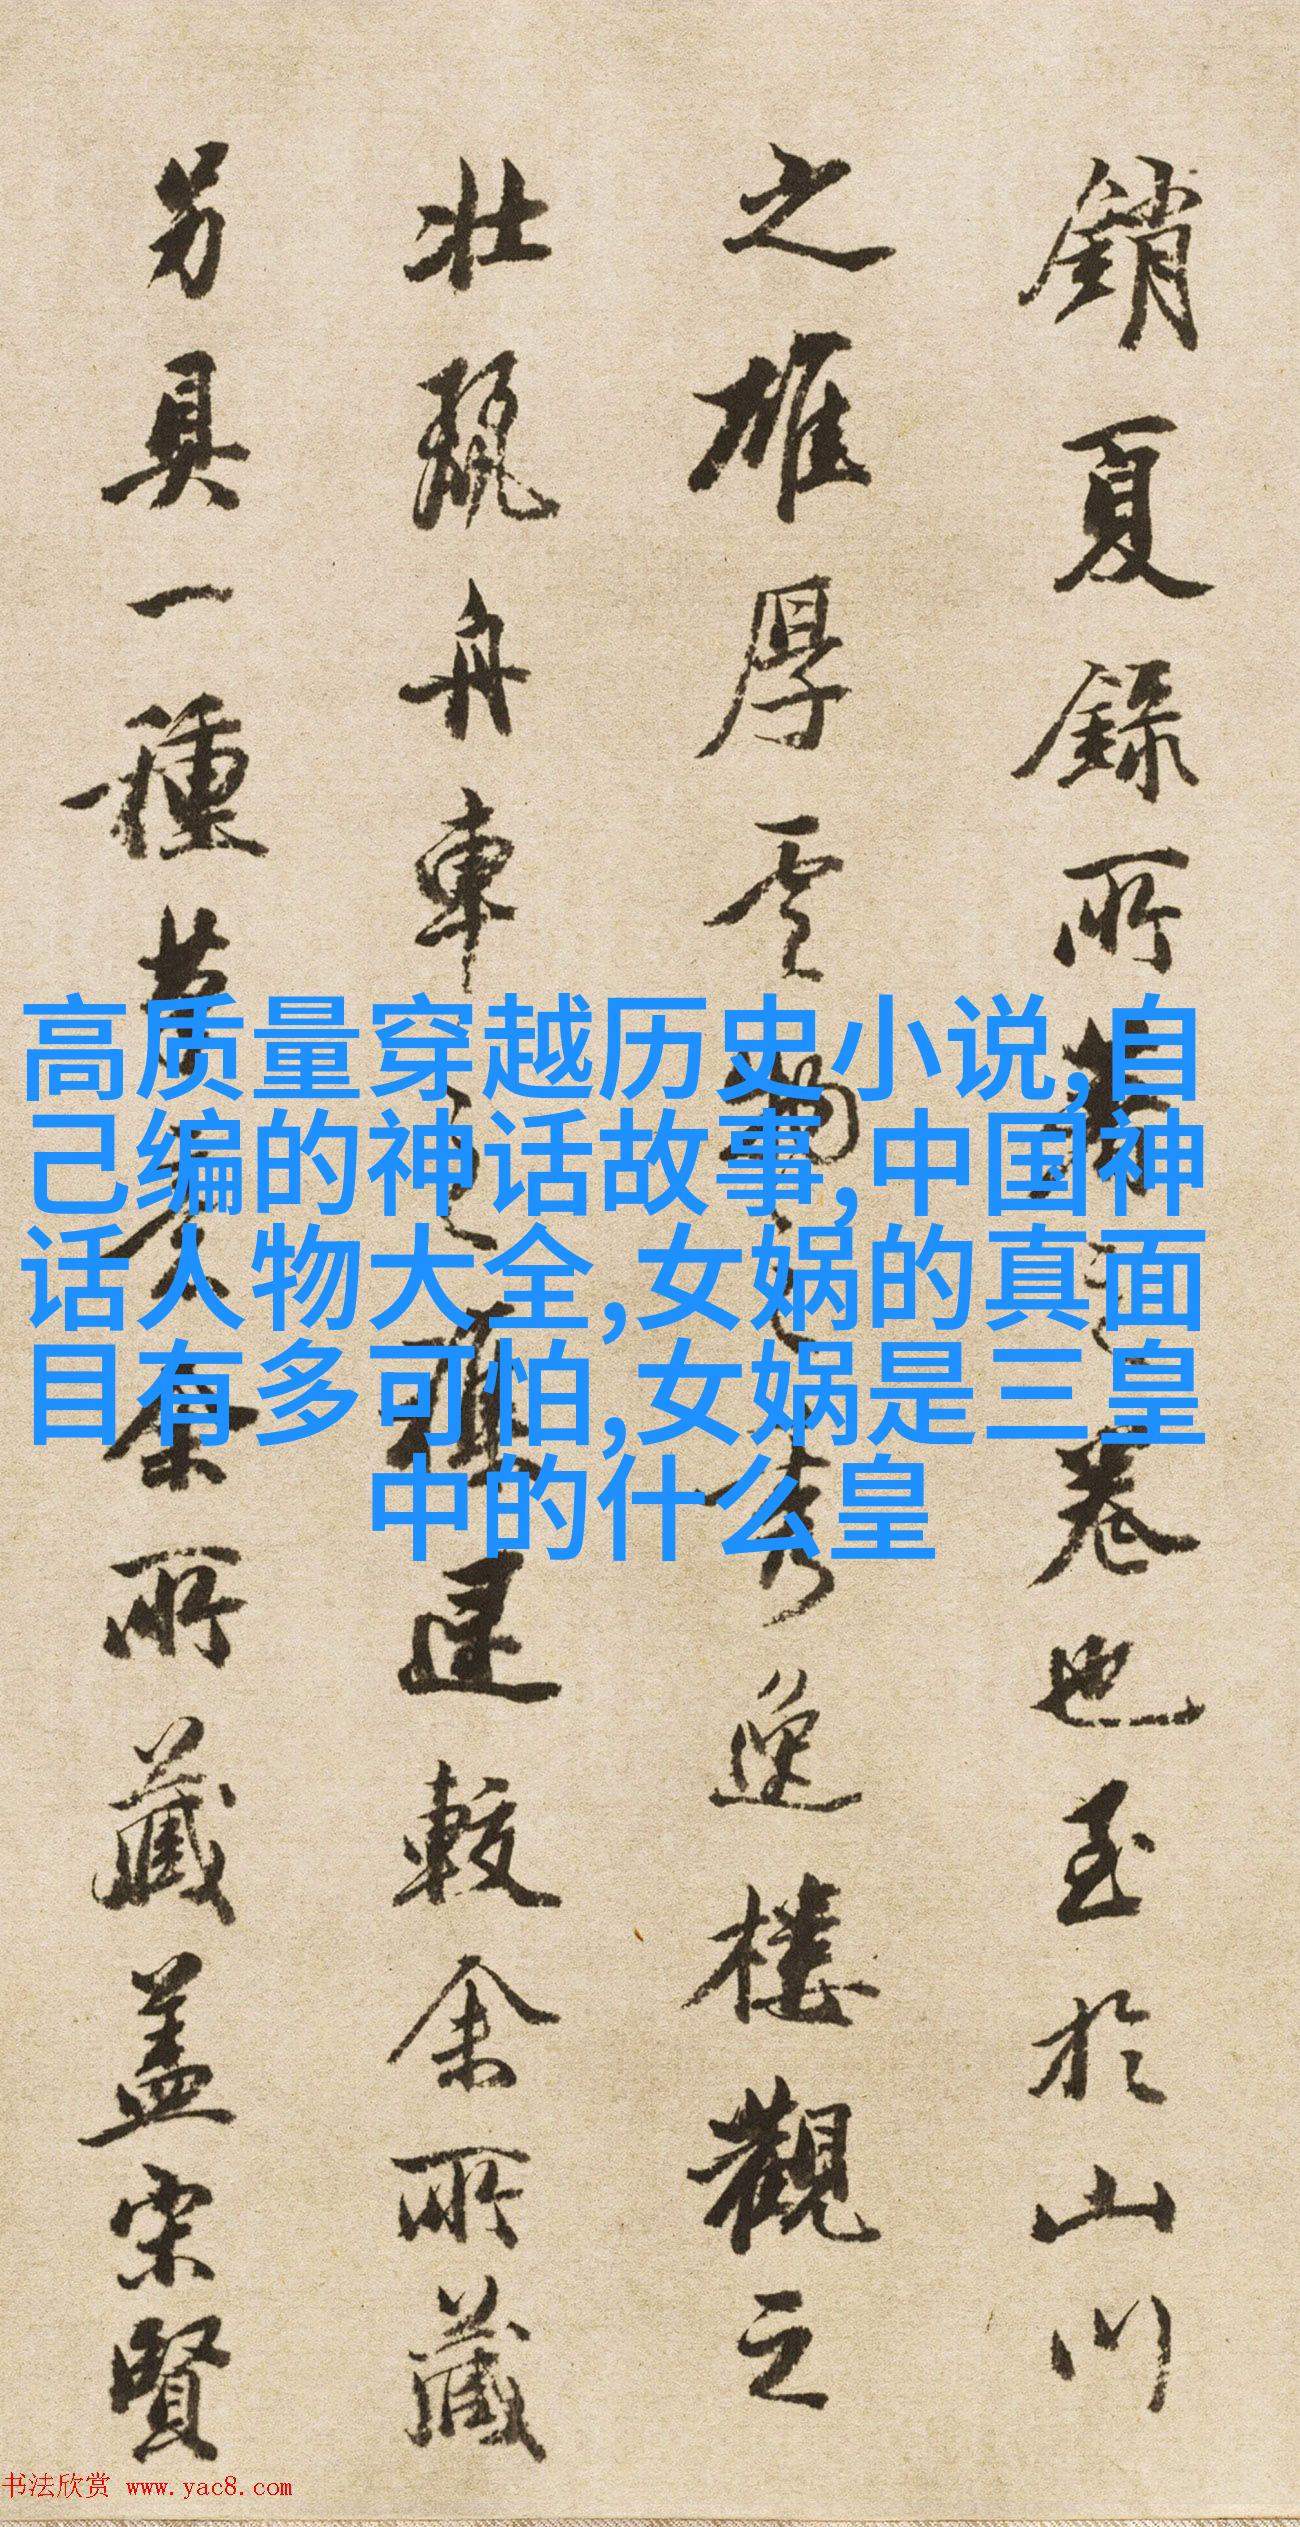 銷夏錄所之卷也至於山川
之雄厚雲物之秀逸樓觀之
壯麗舟車之較余所藏
另具一種余所藏蓋宋賢
高质量穿越历史小说,自
己编的神话故事,中国神
话人物大全,女娲的真面
目有多可怕,女娲是三皇
中的什么皇
书法欣赏 www.yac8.com